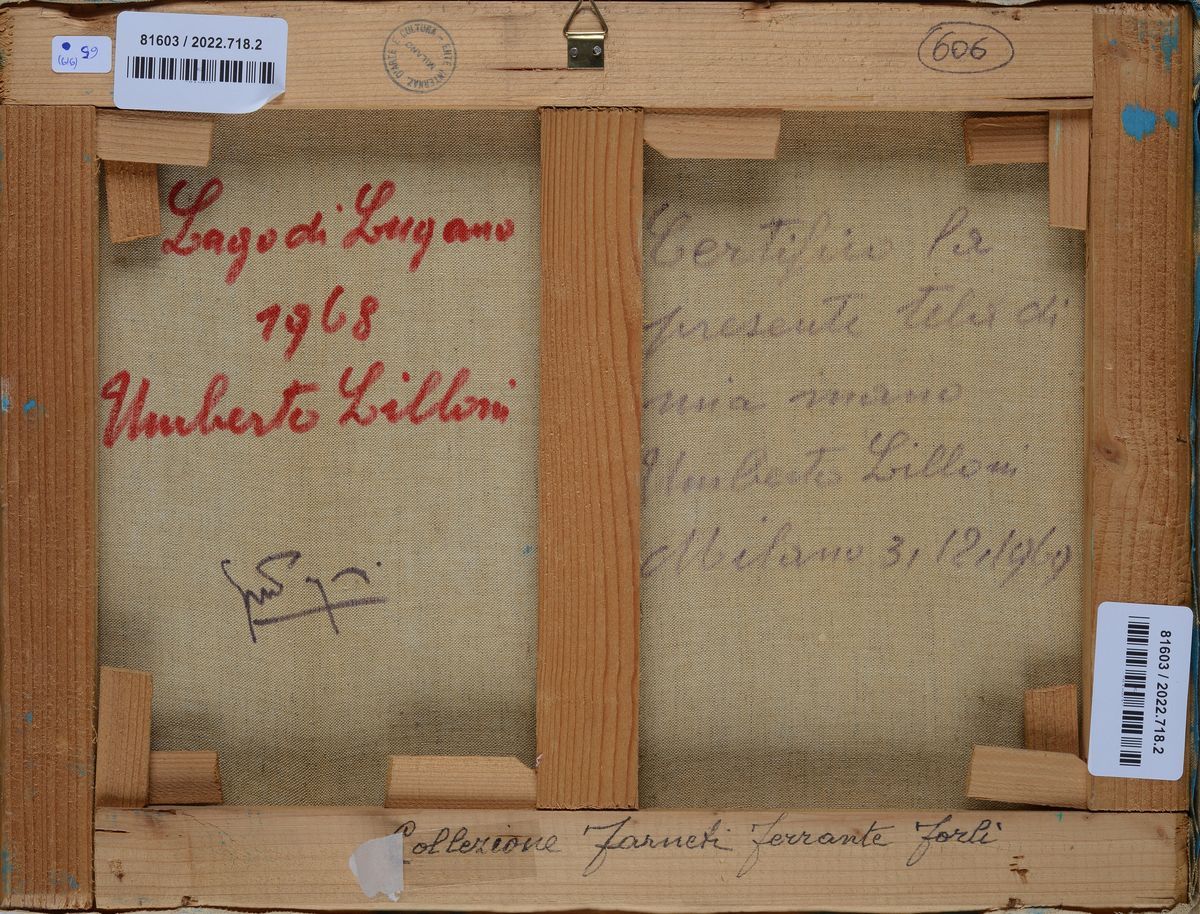 65
(616)
81603 / 2022.718.2
ENTE INTERNAZ. D'ARTE E CULTURA
MILANO
606
Lago di Lugano
1968
Umberto Lilloni
Certifico la
presente tela di
mia mano
Umberto Lilloni
Milano 3, 12, 1969
81603 / 2022.718.2
Collezione Farneti Ferrante Forlì